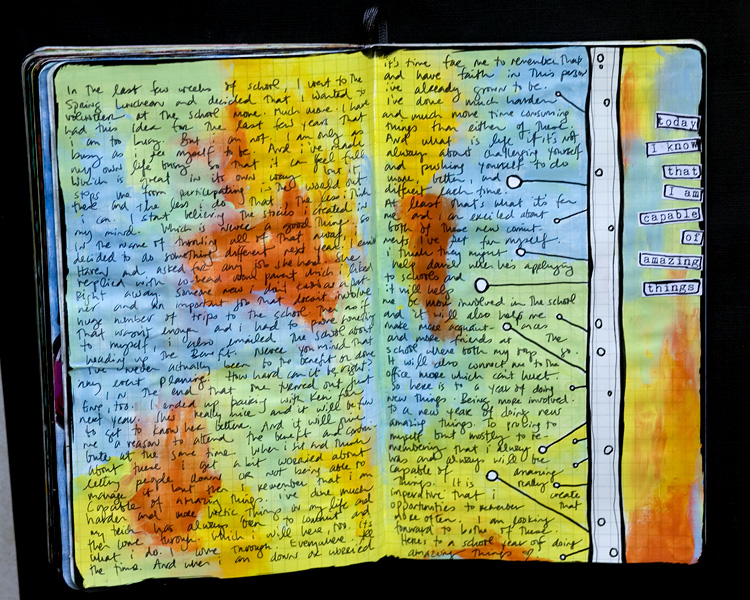 In the last few weeks of school, I went to the
Spring luncheon and decided that I wanted to
volunteer at the school more. Much more. I have
had this idea for the last few years that
I am too busy. But I am not. I am only as
busy as I see myself to be. And I've made
my own life so that it can feel full
which is great in its own way but it
stops me from participating in the world out
there and the less I do that the less I
can. I start believing the stories created in
my mind. Which is never a good thing. So
in the name of that away, I
decided to do something different next year. I
and asked for any job she had. She
replied with co-head about parent which I
right away. Someone new I don't
her and an important job that doesn't involve
huge number of trips to the school. Then as if
that wasn't enough and I had to prove
to myself, I also emailed the school about
heading up the Benefit. Never you mind that
I've never actually been to the benefit or done
any event planning. How hard can it be right?
In the end that one
fine, too. I ended up with Ken for
next year. She's really nice and it will be fun
to get to know her better. And it will give
me a reason to attend the benefit and contri-
bute at the same time. When I sit and think
about these I get a bit worried about
letting people down or not being able to
manage it but then I remember that I am
capable of amazing things. I've done much
harder and more hectic things in my life and
my has always been to commit and
then come through which I will here, too. It's
what I do. I come through. Everywhere. All
the time. And when I am down or worried
it's time for me to remember that
and have faith in this person
i've already grown to be.
i've done much harder
and much more time consuming
things than either of these.
And what is life if it's not
always about challenging yourself
and pushing yourself to do
more, better and
different each time.
At least that's what it's for
me and I am excited about
both of these new commit-
ments I've put for myself.
I think they might
help david when he's applying
to schools and
it will help
me be more involved in the school
and it will also help me
make more acquaint ances
and more friends at the
school where both my go.
It will also connect me to the
office more which can't hurt.
So here is to a year of doing
new things. Being more involved.
To a new year of doing new
amazing things. To proving to
myself but mostly to re-
membering that i always
was and always will be
capable of amazing
things. It is really
imperative that i create
opportunities to remember
more often. I am looking
forward to both of these.
Here's to a school year of doing
amazing things
today
I know
that
I am
capable
of
amazing
things